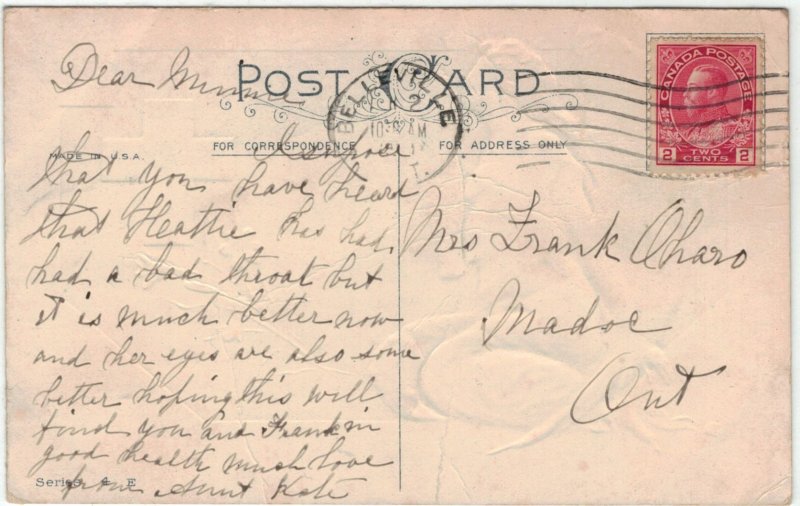 Dear Minnie
POST CARD
BELLEVILLE
10 AM
CANADA POSTAGE
2 TWO CENTS 2
FOR CORRESPONDENCE
FOR ADDRESS ONLY
MADE IN U.S.A.
that you have heard
that Heattie has had
had a bad throat but
it is much better now
and her eyes are also some
better hoping this will
find you and Frank in
good health much love
from Aunt Kate
Series E
Mrs Frank Oharo
Madoc
Ont